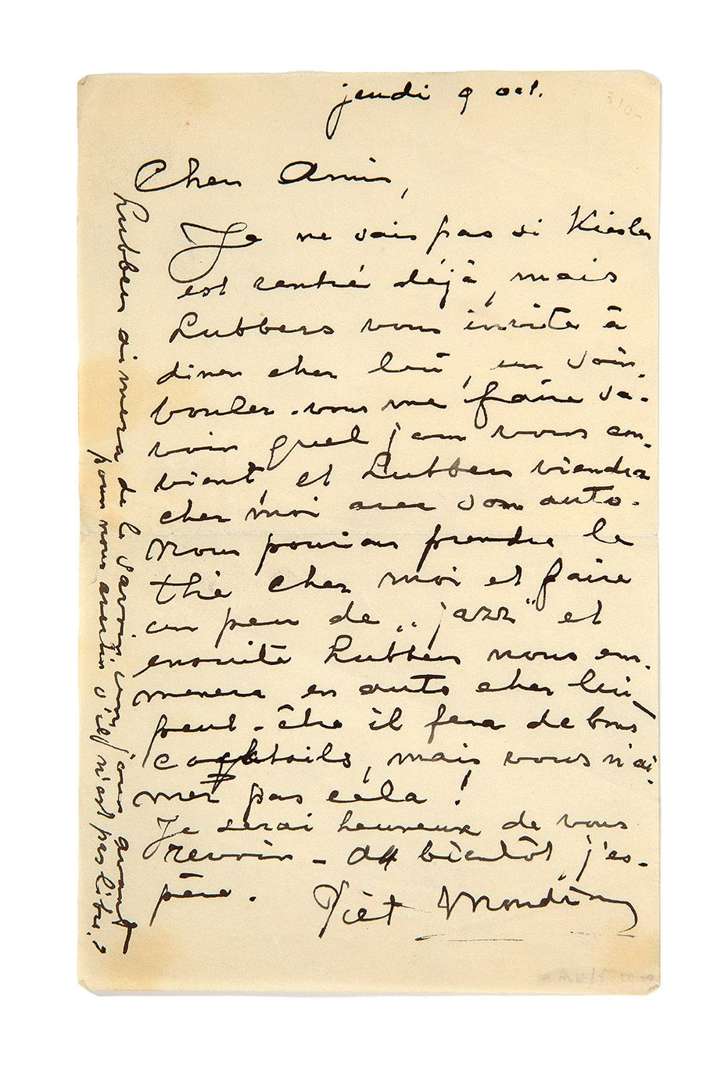 jeudi 9 oct.
Cher Amis,
Je ne sais pas si Kiesler
est rentré déjà, mais
Lubbers vous invite à
diner chez lui, un soir.
voulez-vous me faire sa-
voir quel jour vous con-
vient et Lubbers viendra
chez moi avec son auto.
Nous pouvions prendre le
thé chez moi et faire
un peu de „jazz" et
ensuite Lubbers nous em-
menera en auto chez lui
peut-être il fera de bons
cocktails, mais vous n'ai-
mez pas cela!
Je serai heureux de vous
revoir - A bientôt j'es-
père.
Piet Mondrian
Lubbers aimera de le savoir un jour avant
pour nous avertir s'il n'est pas libre.